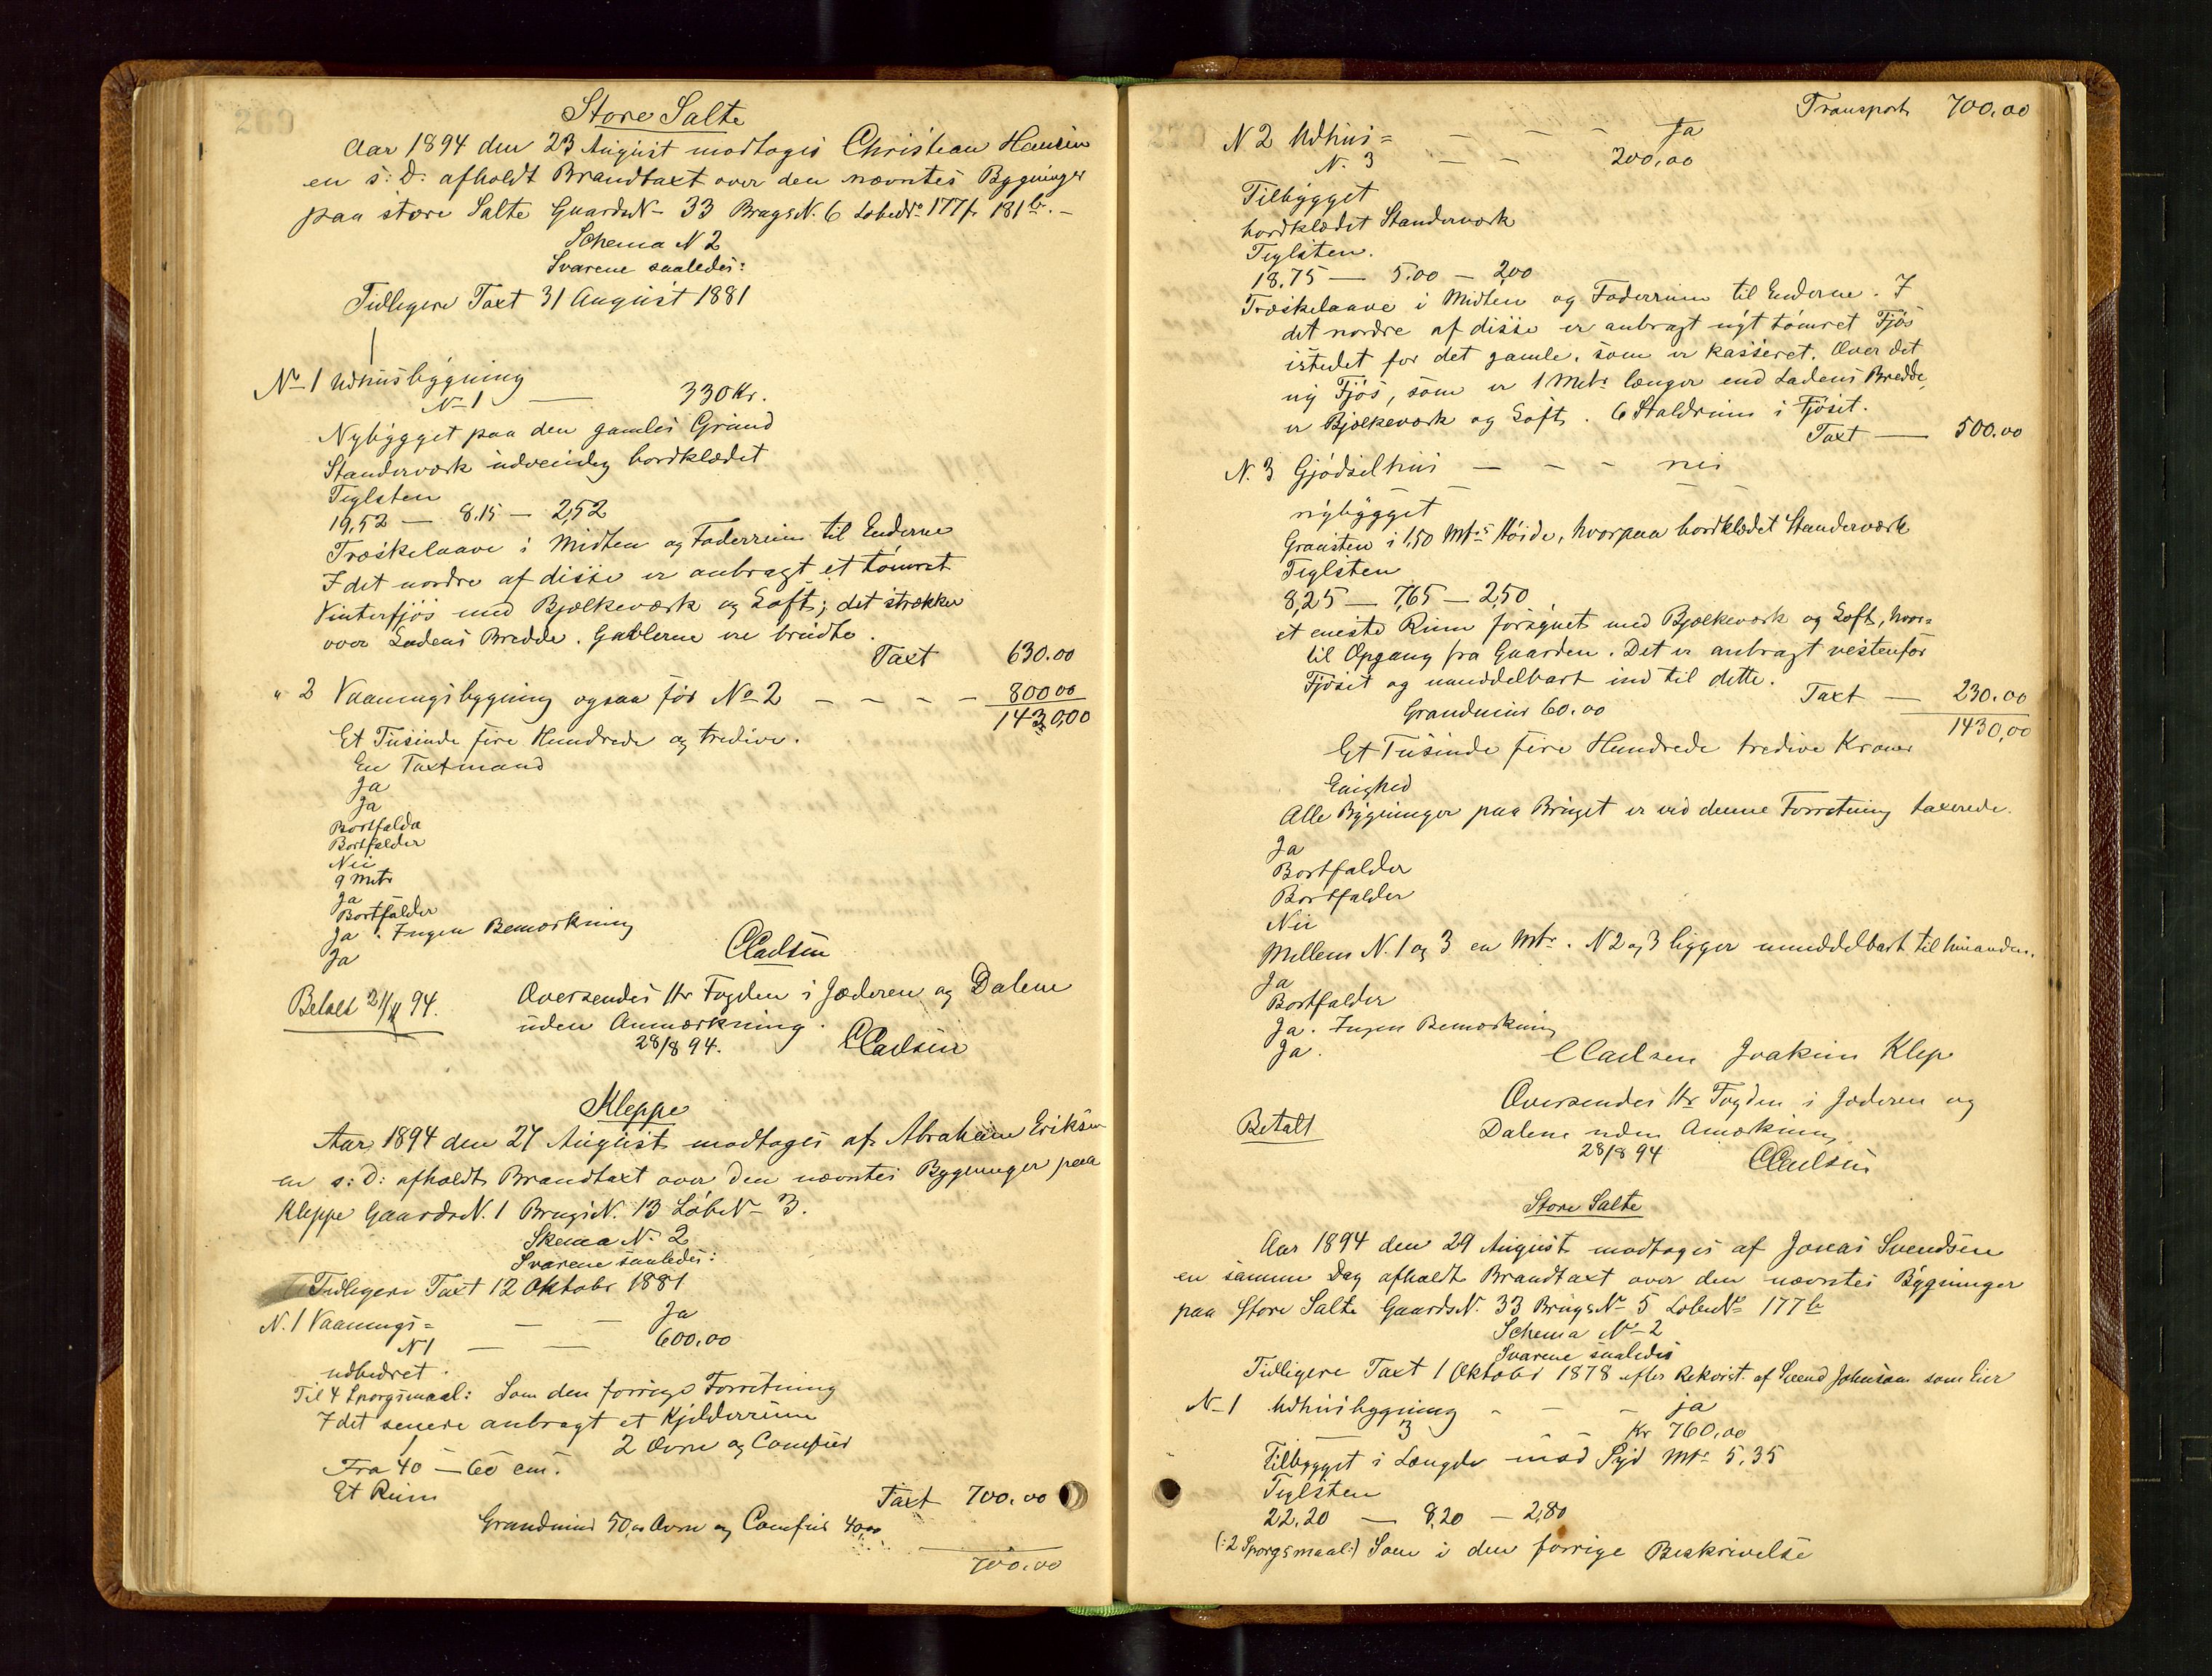 Store Salte
Aar 1894 den 23 August modtages Christian Hansen
en s: D: afholdt Brandtaxt over den nævntes Bygninger
paa store Salte GaardsN. 33 BrugsN. 6 LøbeNo 177f. 181b. –
Schema N 2
Svarene saaledes:
Tidligere Taxt 31 August 1881
No 1 Udhusbygning
No 1 — 330 Kr.
Nybygget paa den gamles Grund
Standerværk udvendig bordklædet
Teglsten
19,52 — 8.15 — 2,52
Træskelaave i Midten og Foderrum til Enderne
I det nordre af disse er anbragt et tømret
Vinterfjøs med Bjælkeværk og Loft; det strækker
over Ladens Bredde. Gavlerne ere brudte.
Taxt 630.00
" 2 Vaaningsbygning ogsaa før No 2 – – – – 800 00
1430,00
Et Tusinde fire Hundrede og tredive.
En Taxtmand
Ja
Ja
Bortfalder
Bortfalder
Nei
9 Mtr
Ja
Bortfalder
Ja. Ingen Bemærkning
Ja
CCarlsen
Betalt 21/11 94.
Oversendes Hr Fogden i Jæderen og Dalene
uden Anmærkning.
28/8 94. CCarlsen
Kleppe
Aar 1894 den 27 August modtages af Abraham Eriksen
en s: D: afholdt Brandtaxt over den nævntes Bygninger paa
Kleppe GaardsN. 1 BrugsN. 13 LøbeN. 3.
Skema N. 2
Svarene saaledes:
Tidligere Taxt 12 Oktober 1881
N. 1 Vaanings= — — Ja
N 1 — — 600.00
udbedret.
Til 4 Spørgsmaal: Som den forrige Forretning
I det senere anbragt et Kjelderrum
2 Ovne og Comfur
Fra 40 — 60 cm.
Et Rum
Taxt 700.00
Grundmur 50,00 Ovne og Comfur 40,00
700.00
Transport 700,00
N 2 Udhus= – – – Ja
N. 3 – – 200,00
Tilbygget
bordklædet Standerværk
Teglsten.
18,75 — 5.00 — 2,00
Træskelaave i Midten og Foderrum til Enderne. I
det nordre af disse er anbragt nyt tømret Fjøs
istedet for det gamle, som er kasseret. Over det
ny Fjøs, som er 1 Mtr længer end Ladens Bredde,
er Bjælkeværk og Loft. 6 Staldrum i Fjøset.
Taxt — 500.00
N. 3 Gjødselhus — – – nei
nybygget
Graasten i 1,50 Mtrs Høide, hvorpaa bordklædet Standerværk
Teglsten
8,25 — 7,65 — 2,50
et eneste Rum forsynet med Bjælkeværk og Loft, hvor=
til Opgang fra Gaarden. Det er anbragt vestenfor
Fjøset og umiddelbart ind til dette.
Taxt — 230.00
Grundmur 60.00
1430,00
Et Tusinde fire Hundrede tredive Kroner
Enighed
Alle Bygninger paa Bruget er ved denne Forretning taxerede.
Ja
Bortfalder
Bortfalder
Nei
Mellem N. 1 og 3 en Mtr. N 2 og 3 ligger umiddelbart til hinanden.
Ja
Bortfalder
Ja. Ingen Bemærkning
Ja.
CCarlsen Joakim Klep
Oversendes Hr Fogden i Jæderen og
Dalene uden Anmærkning
28/8 94 CCarlsen
Betalt
Store Salte
Aar 1894 den 29 August modtages af Jonas Svendsen
en samme Dag afholdt Brandtaxt over den nævntes Bygninger
paa store Salte GaardsN. 33 BrugsNo 5 LøbeNo 177b
Schema No 2
Svarene saaledes
Tidligere Taxt 1 Oktober 1878 efter Rekvist. af Svend Johnsen som Eier
N. 1 Udhusbygning – – – ja
3 Kr 760,00
Tilbygget i Længde mod Syd Mtr 5,35
Teglsten
22,20 — 8,20 — 2,80
(:2 Spørgsmaal:) Som i den forrige Beskrivelse